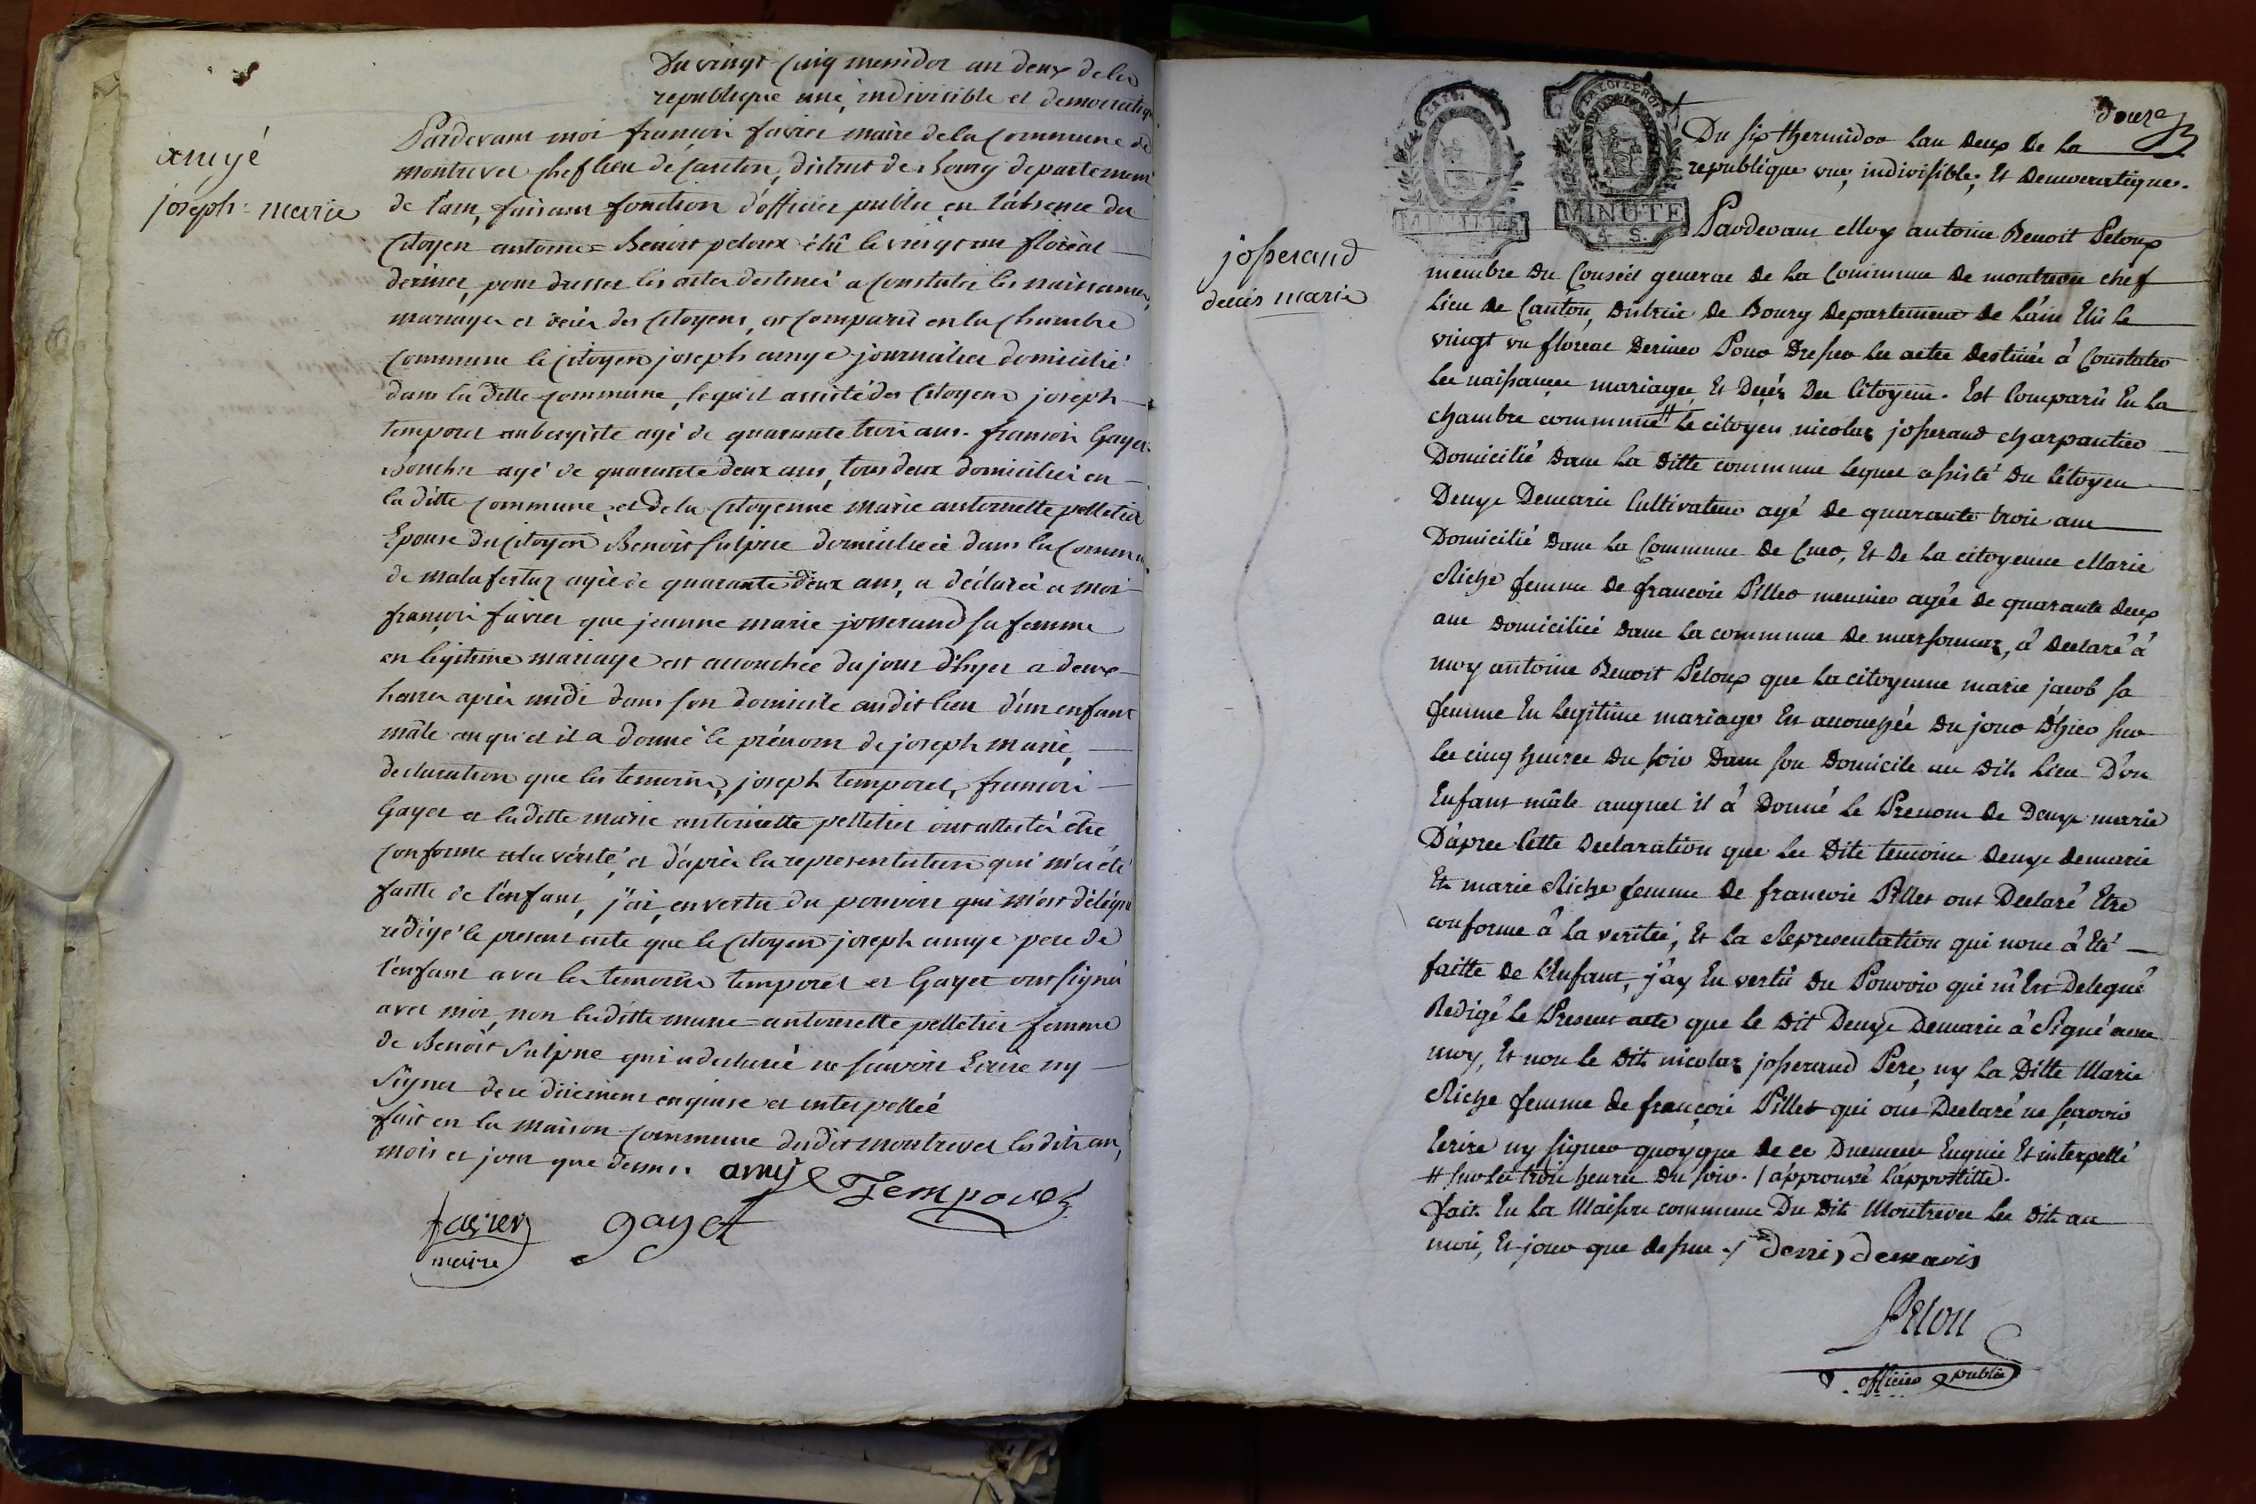 Du vingt cinq messidor an deux de la
republique une, indivisible et democratique
amyé
joseph=marie
Pardevant moi françois favier maire de la commune de
montrevel chef lieu de canton, district de Bourg departement
de l'ain, faisant fonction d'officier public en l'absence du
Citoyen antoine=Benoit peloux élû le vingt un floréal
dernier, pour dresser les actes destinés a constater les naissances,
mariages et décès des Citoyens, est comparû en la chambre
commune le Citoyen joseph amyé journalier domicilié
dans la ditte commune, lequel assisté des Citoyens joseph
temporel aubergiste agé de quarante trois ans. françois Gayet
Boucher agé de quarante deux ans, tous deux domiciliés en
la ditte commune, et de la Citoyenne marie antoinette pelletier
Epouse du Citoyen Benoit Sulpice domiciliée dans la Commune
de malafertaz agée de quarante deux ans, a déclaré a moi
françois favier que jeanne marie josserand sa femme
en legitime mariage est accouchée du jour d'hyer a deux
heures après midi dans son domicile audit lieu d'un enfant
mâle auquel il a donné le prénom de joseph marie,
declaration que les temoins, joseph temporel, françois
Gayet et laditte marie antoinette pelletier ont attesté être
conforme a la vérité, et d'après la representation qui m'a été
faitte de l'enfant, j'ai, en vertu du pouvoir qui m'est délégué
rédigé le present acte que le Citoyen joseph amyé pere de
l'enfant avec les temoins temporel et Gayet ont signé
avec moi, non laditte marie=antoinette pelletier femme
de Benoit Sulpice qui a declaré ne scavoir Ecrire ny
Signer de ce dûement enquise et interpellée
fait en la maison commune dudit montrevel les dits an,
mois et jour que dessus. amyé Temporel
favier gayet
maire
douze
MINUTE
MINUTE
4 S.
Du six thermidor L'an deux de la
republique une, indivisible, Et Democratique.
josserand
denis marie
Pardevant Moy antoine Benoit Peloux
membre du Conseil general de La Commune de montrevel chef
Lieu de Canton, District de Bourg Departement de L'ain Elû le
vingt un floreal Dernier Pour Dresser les actes destinés à Constater
les naissances mariages Et Decès Des Citoyens. Est Comparû En La
chambre commune # Le citoyen nicolas josserand charpantier
Domicilié Dans La Ditte commune Lequel assisté Du Citoyen
Denys Demarie Cultivateur agé de quarante trois ans
Domicilié Dans La Commune de Cuet, Et De La citoyenne Marie
Riche femme de françois Pillet meunier agée de quarante deux
ans Domiciliée Dans La commune de marsonnaz, à Declaré à
moy antoine Benoit Peloux que La citoyenne marie jacob sa
femme En Legitime mariage Est accouchée Du jour D'hier sur
les cinq heures Du soir Dans son Domicile au Dit Lieu D'un
Enfant mâle auquel il à Donné Le Prenom De Denys marie
D'après Cette Declaration que Les Dits temoins Denys demarie
Et marie Riche femme de françois Pillet ont Declaré Etre
conforme à la verité, Et La Representation qui nous à Eté
faitte de L'Enfant, j'ay En vertû Du Pouvoir qui m'Est Delegué
Redigé Le Present acte que Le Dit Denys Demarie à Signé avec
moy, Et non Le Dit nicolas josserand Pere, ny La Ditte Marie
Riche femme de françois Pillet qui ont Declaré ne scavoir
Ecrire ny signer quoyque de ce Duement Enquis Et interpellé
# sur Les trois heures Du soir. / approuvé L'appostille.
fait En La Maison commune Du Dit Montrevel Les Dits an
mois, Et jour que dessus ./ denis demaris
Pelou
officier public